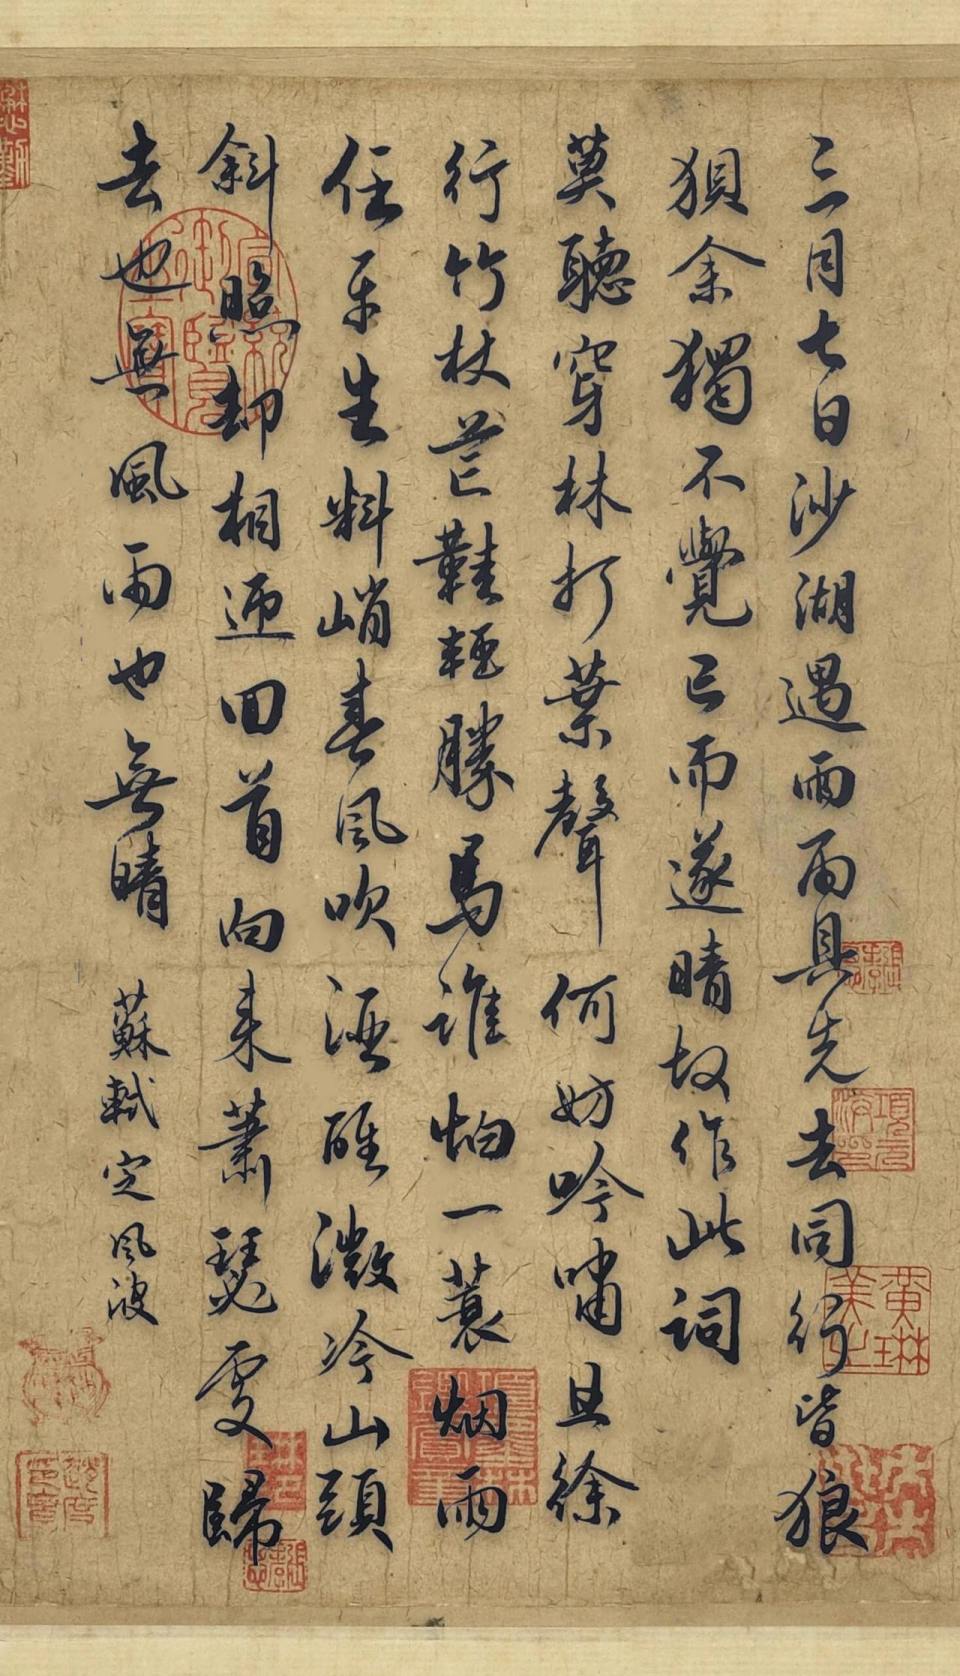 三月七日沙湖遇雨雨具先去同行皆狼
狽余獨不覺已而遂晴故作此詞
莫聽穿林打葉聲 何妨吟嘯且徐
行竹杖芒鞋輕勝馬誰怕一蓑烟雨
任平生料峭春風吹酒醒微冷山頭
斜照却相迎回首向来蕭瑟處歸
去也無風雨也無晴 蘇軾定風波
黃琳美之